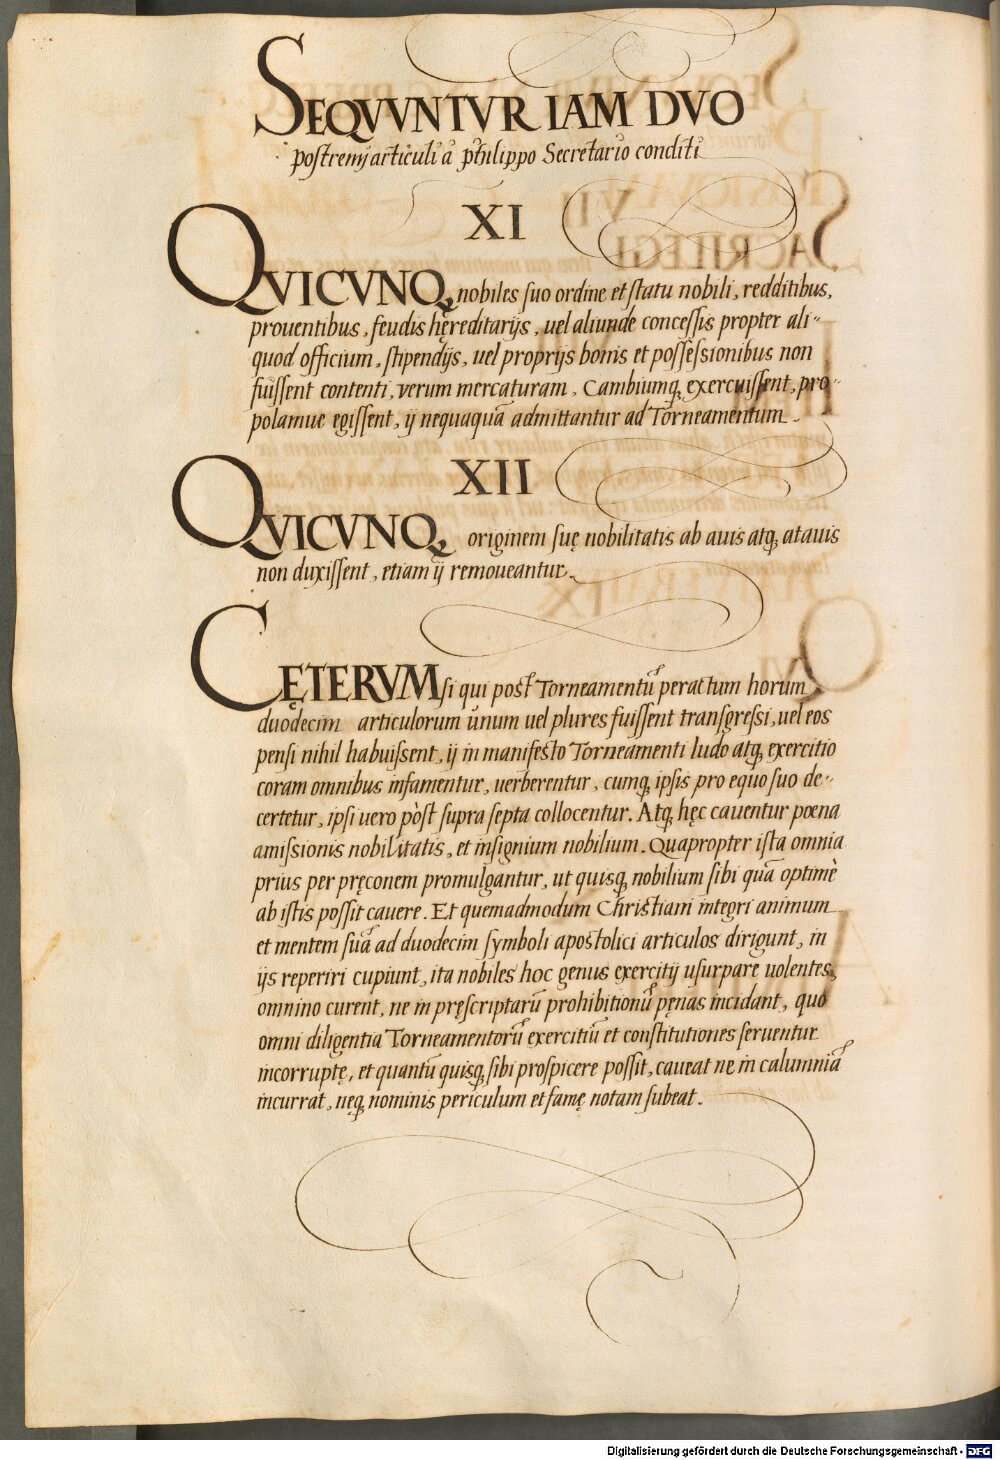 SEQVVNTVR IAM DVO
postremi articuli à philippo Secretario conditi
XI
QVICVNQ, nobiles suo ordine et statu nobili, redditibus,
prouentibus, feudis hęreditarijs, uel aliunde concessis propter ali-
quod officium, stipendijs, uel proprijs bonis et possessionibus non
fuissent contenti, verum mercaturam, Cambiumq, exercuissent, pro-
polamue egissent, ij nequaquā admittantur ad Torneamentum.
XII
QVICVNQ, originem suę nobilitatis ab auis atq, atauis
non duxissent, etiam ij remoueantur.
CĘTERVM si qui post Torneamentū peractum horum
duodecim articulorum unum uel plures fuissent transgressi, uel eos
pensi nihil habuissent, ij in manifesto Torneamenti ludo atq, exercitio
coram omnibus infamentur, uerberentur, cumq, ipsis pro equo suo de-
certetur, ipsi uero pòst supra septa collocentur. Atq, hęc cauentur poena
amissionis nobilitatis, et insignium nobilium. Quapropter ista omnia
prius per pręconem promulgantur, ut quisq, nobilium sibi quā optimè
ab istis possit cauere. Et quemadmodum Christiani integri animum
et mentem suā ad duodecim symboli apostolici articulos dirigunt, in
ijs reperiri cupiunt, ita nobiles hoc genus exercitij usurpare uolentes,
omnino curent, ne in pręscriptarū prohibitionū pęnas incidant, quo
omni diligentia Torneamentorū exercitiū et constitutiones seruentur
incorruptę, et quantū quisq, sibi prospicere possit, caueat ne in calumniā
incurrat, neq, nominis periculum et famę notam subeat.
Digitalisierung gefördert durch die Deutsche Forschungsgemeinschaft - DFG